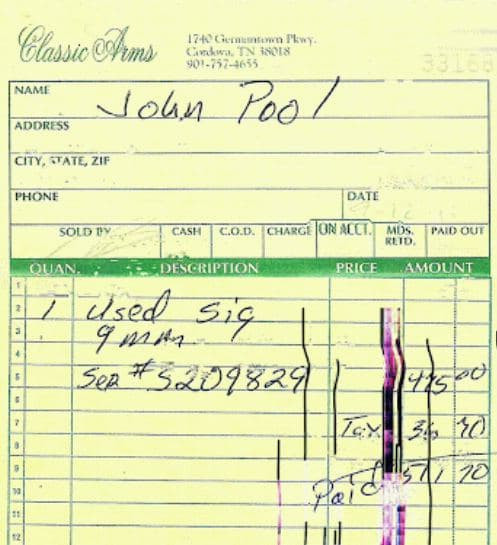 Classic Arms
1740 Germantown Pkwy.
Cordova, TN 38018
901-757-4655
33168
NAME John Pool
ADDRESS
CITY, STATE, ZIP
PHONE DATE
SOLD BY CASH C.O.D. CHARGE ON ACCT. MDS. RETD. PAID OUT
QUAN. DESCRIPTION PRICE AMOUNT
1
2 1 Used Sig
3 9mm
4
5 Ser # S209829 475 00
6
7 Tax
8
9 511 70
10 Paid
11
12